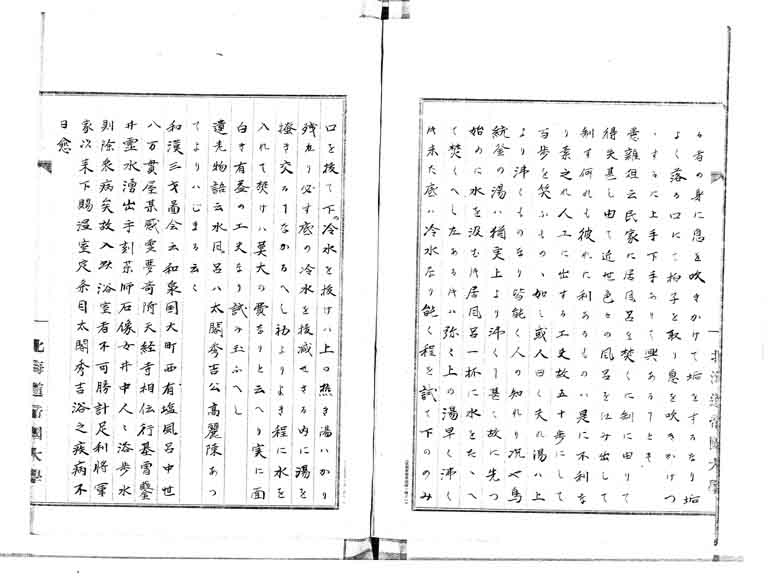 々者の身に息を吹きかけて垢をするなり垢
よく落つ口にて拍子を取り息を吹きかけつ
するに上手下手ありて興あることとき
意雑俎云民家に居風呂を焚くに制に由りて
得失甚し由て近世色々の風呂を仕み出して
制す何れも彼れに利あるものハ是に不利な
り素之れ人工に出する工夫故五十歩にして
百歩を笑ふものゝ如し或人曰く夫れ湯ハ上
より沸くものなり皆能く人の知れり況や鳥
統釜の湯ハ猶実上より沸くこ甚し故に先つ
始めに水を汲む時居風呂一杯に水をたゝへ
て焚くへしたある時ハ弥々上の湯早く沸く
時未た底ハ冷水たり能く程を試て下ののみ
口を抜て下の冷水を抜けハ上の熱き湯ハかり
残なり必す底の冷水を抜減せさる内に湯を
掻き交ることなかるへし初よりよき程に水を
入れて焚けハ莫大の費なりと云へり実に面
白き有益の工夫なり試み玉ふへし
遺老物語云水風呂ハ太閤秀吉公高麗陳あつ
てよりハじまる云々
和漢三才図会云和泉国大町西有塩風呂中世
八万貫屋某感霊夢奇附天経寺相伝行基曽鑿
井霊水湧出手刻薬師石像女井中人々浴歩水
則除衆病矣故入此浴室者不可勝計足利将軍
家以来下賜湿室定条目太閤秀吉浴之疾病不
日愈
北海道帝国大学
北海道帝国大学